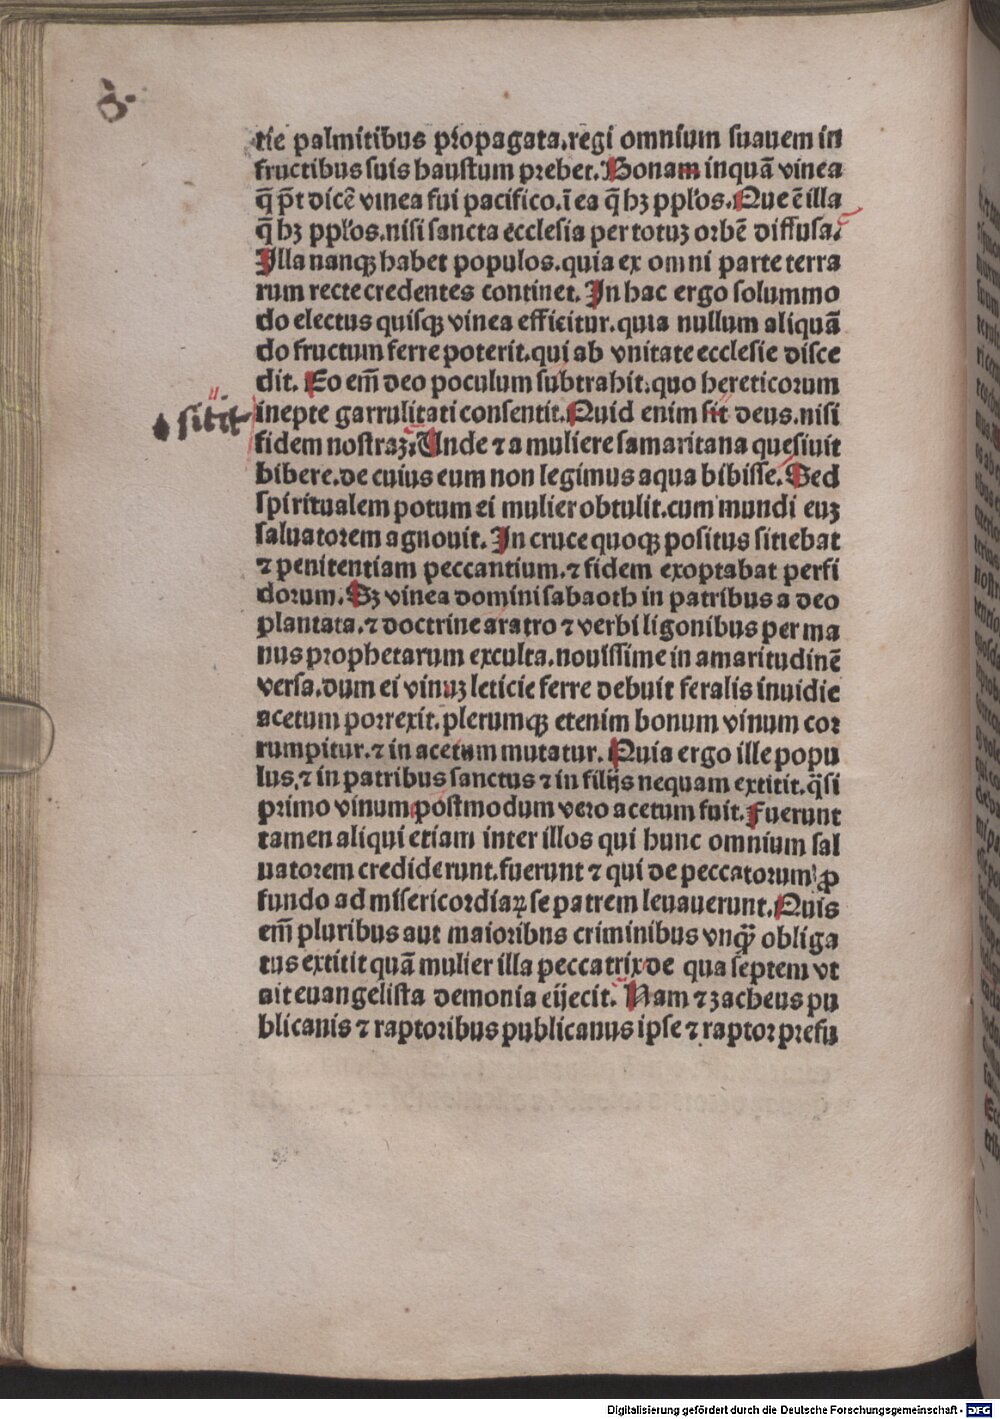 tie palmitibus propagata.regi omnium suauem in
fructibus suis haustum prebet. Bonam inquā vinea
q̄ p̄t dicē vinea fui pacifico.ī ea q̄ hꝫ ppl'os. Que ē illa
q̄ hꝫ ppl'os.nisi sancta ecclesia per totuꝫ orbē diffusa.
Illa nanqꝫ habet populos.quia ex omni parte terra
rum recte credentes continet. In hac ergo solummo
do electus quisqꝫ vinea efficitur.quia nullum aliquā
do fructum ferre poterit.qui ab vnitate ecclesie disce
dit. Eo em̄ deo poculum subtrahit.quo hereticorum
sitit
inepte garrulitati consentit. Quid enim sit deus.nisi
fidem nostraꝫ. Unde ⁊ a muliere samaritana quesiuit
bibere.de cuius eum non legimus aqua bibisse. Sed
spiritualem potum ei mulier obtulit.cum mundi euꝫ
saluatorem agnouit. In cruce quoqꝫ positus sitiebat
⁊ penitentiam peccantium.⁊ fidem exoptabat perfi
dorum. Sꝫ vinea domini sabaoth in patribus a deo
plantata.⁊ doctrine aratro ⁊ verbi ligonibus per ma
nus prophetarum exculta.nouissime in amaritudinē
versa.dum ei vinuꝫ leticie ferre debuit feralis inuidie
acetum porrexit.plerumqꝫ etenim bonum vinum cor
rumpitur.⁊ in acetum mutatur. Quia ergo ille popu
lus.⁊ in patribus sanctus ⁊ in filijs nequam extitit.q̄si
primo vinum postmodum vero acetum fuit. Fuerunt
tamen aliqui etiam inter illos qui hunc omnium sal
uatorem crediderunt.fuerunt ⁊ qui de peccatorum ꝓ
fundo ad misericordiaꝫ se patrem leuauerunt. Quis
em̄ pluribus aut maioribns criminibus vnqꝫ̄ obliga
tus extitit quā mulier illa peccatrix de qua septem vt
ait euangelista demonia eijecit. Nam ⁊ zacheus pu
blicanis ⁊ raptoribus publicanus ipse ⁊ raptor prefu
Digitalisierung gefördert durch die Deutsche Forschungsgemeinschaft - DFG